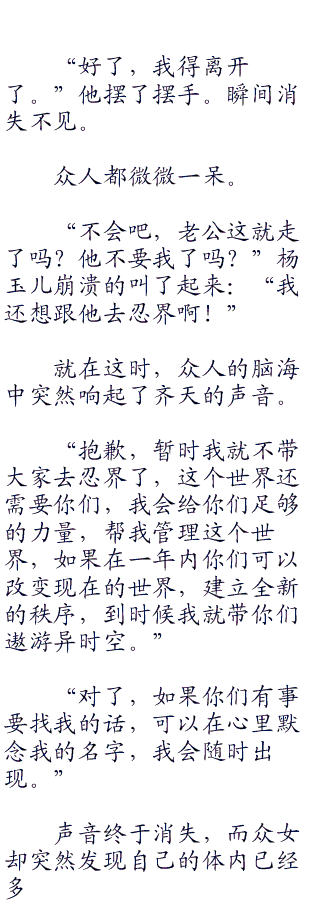 “好了，我得离开
了。”他摆了摆手。瞬间消
失不见。
众人都微微一呆。
“不会吧，老公这就走
了吗？他不要我了吗？”杨
玉儿崩溃的叫了起来：“我
还想跟他去忍界啊！”
就在这时，众人的脑海
中突然响起了齐天的声音。
“抱歉，暂时我就不带
大家去忍界了，这个世界还
需要你们，我会给你们足够
的力量，帮我管理这个世
界，如果在一年内你们可以
改变现在的世界，建立全新
的秩序，到时候我就带你们
遨游异时空。”
“对了，如果你们有事
要找我的话，可以在心里默
念我的名字，我会随时出
现。”
声音终于消失，而众女
却突然发现自己的体内已经
多